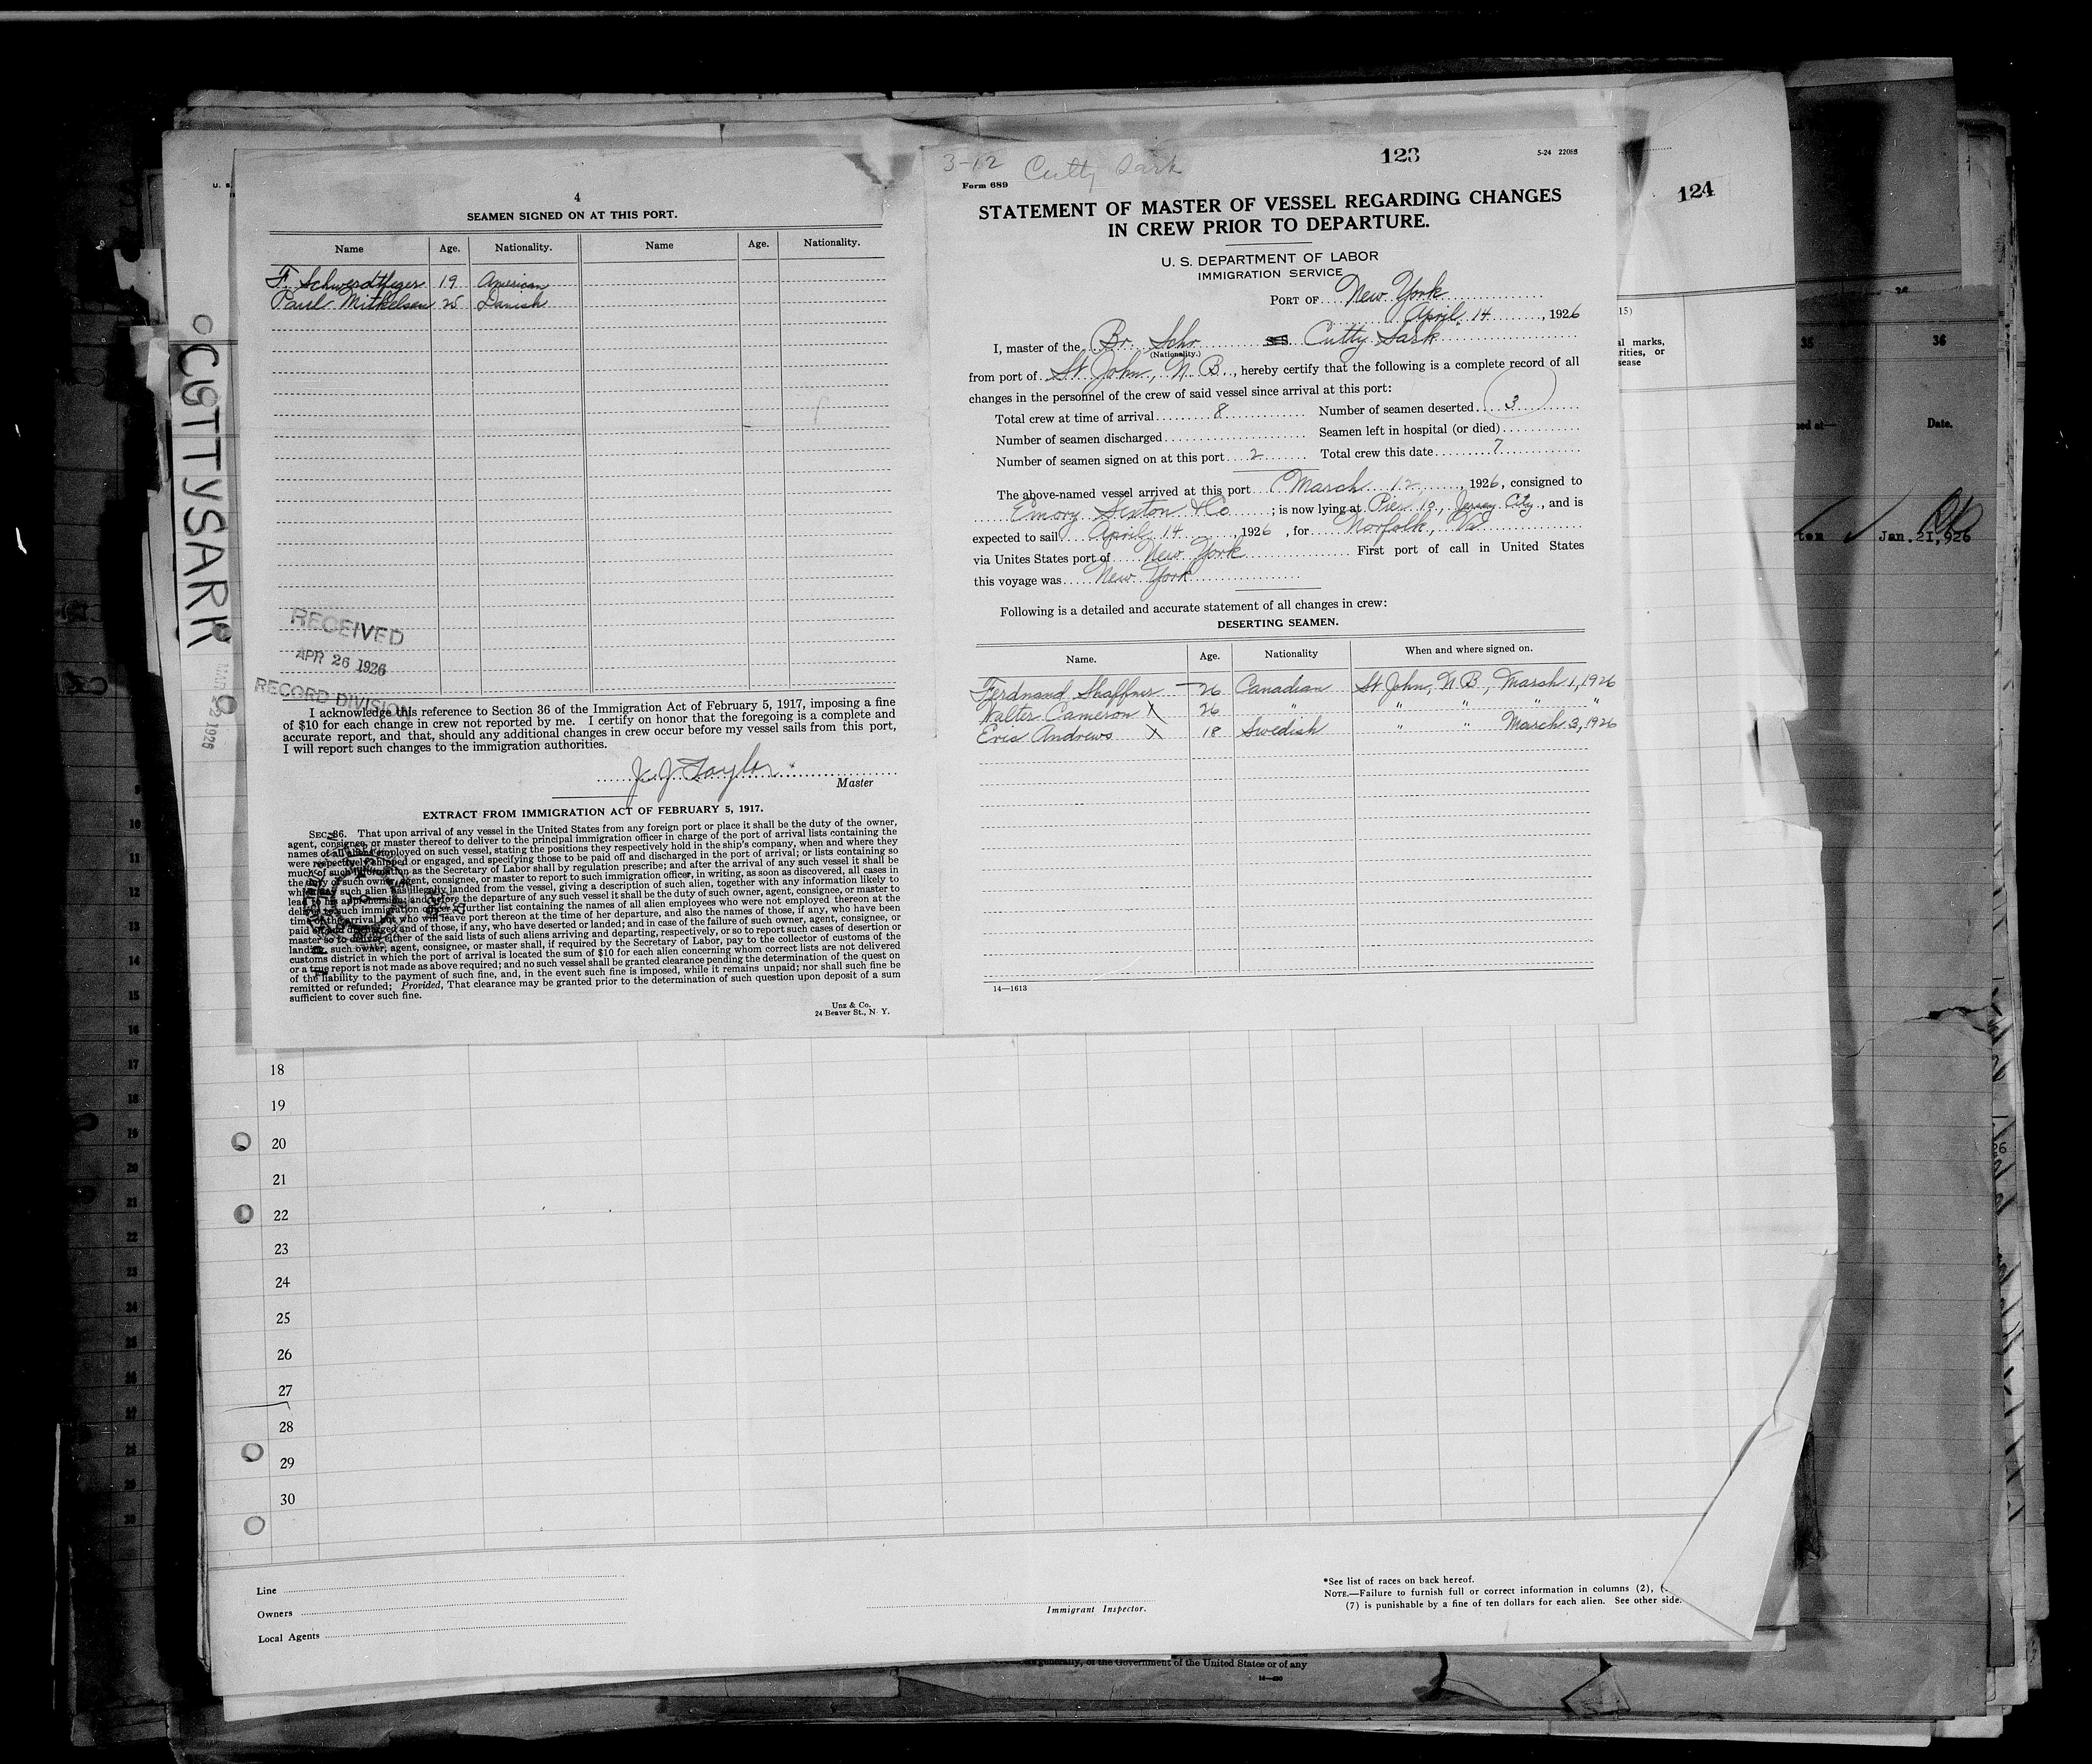 4
SEAMEN SIGNED ON AT THIS PORT.
Name Age. Nationality. Name Age. Nationality.
F. Schwerdtfeger 19 American
Paul Mitkelsen 25 Danish
RECEIVED
APR 26 1926
RECORD DIVISION
I acknowledge this reference to Section 36 of the Immigration Act of February 5, 1917, imposing a fine
of $10 for each change in crew not reported by me. I certify on honor that the foregoing is a complete and
accurate report, and that, should any additional changes in crew occur before my vessel sails from this port,
I will report such changes to the immigration authorities.
J. J. Taylor
Master
EXTRACT FROM IMMIGRATION ACT OF FEBRUARY 5, 1917.
SEC. 36. That upon arrival of any vessel in the United States from any foreign port or place it shall be the duty of the owner,
agent, consignee, or master thereof to deliver to the principal immigration officer in charge of the port of arrival lists containing the
names of all aliens employed on such vessel, stating the positions they respectively hold in the ship's company, when and where they
were respectively shipped or engaged, and specifying those to be paid off and discharged in the port of arrival; or lists containing so
much of such information as the Secretary of Labor shall by regulation prescribe; and after the arrival of any such vessel it shall be
the duty of such owner, agent, consignee, or master to report to such immigration officer, in writing, as soon as discovered, all cases in
which any such alien has illegally landed from the vessel, giving a description of such alien, together with any information likely to
lead to his apprehension; and before the departure of any such vessel it shall be the duty of such owner, agent, consignee, or master to
deliver to such immigration officer a further list containing the names of all alien employees who were not employed thereon at the
time of the arrival but who will leave port thereon at the time of her departure, and also the names of those, if any, who have been
paid off and discharged and of those, if any, who have deserted or landed; and in case of the failure of such owner, agent, consignee, or
master so to deliver either of the said lists of such aliens arriving and departing, respectively, or so to report such cases of desertion or
landing, such owner, agent, consignee, or master shall, if required by the Secretary of Labor, pay to the collector of customs of the
customs district in which the port of arrival is located the sum of $10 for each alien concerning whom correct lists are not delivered
or a true report is not made as above required; and no such vessel shall be granted clearance pending the determination of the quest on
of the liability to the payment of such fine, and, in the event such fine is imposed, while it remains unpaid; nor shall such fine be
remitted or refunded; Provided, That clearance may be granted prior to the determination of such question upon deposit of a sum
sufficient to cover such fine.
Unz & Co.
24 Beaver St., N. Y.
3-12 Cutty Sark 123 5-24 22088
Form 689
STATEMENT OF MASTER OF VESSEL REGARDING CHANGES
IN CREW PRIOR TO DEPARTURE.
U. S. DEPARTMENT OF LABOR
IMMIGRATION SERVICE
PORT OF New York
April 14, 1926
I, master of the Br. Schr S.S. Cutty Sark
(Nationality.)
from port of St John, N. B., hereby certify that the following is a complete record of all
changes in the personnel of the crew of said vessel since arrival at this port:
Total crew at time of arrival 8 Number of seamen deserted 3
Number of seamen discharged Seamen left in hospital (or died)
Number of seamen signed on at this port 2 Total crew this date 7
The above-named vessel arrived at this port March 12, 1926, consigned to
Emory Sexton & Co; is now lying at Pier 10, Jersey City, and is
expected to sail April 14, 1926, for Norfolk, Va
via Unites States port of New York First port of call in United States
this voyage was New York
Following is a detailed and accurate statement of all changes in crew:
DESERTING SEAMEN.
Name. Age. Nationality When and where signed on.
Ferdnand Shaffner 26 Canadian St John, N B, March 1, 1926
Walter Cameron X 26 " " " " "
Eric Andrews X 18 Swedish " " March 3, 1926
14—1613
124
CUTTY SARK
MAR 22 1926
15)
al marks,
rities, or
sease
35 36
ned at— Date.
ten Jan. 21, 926
9
10
11
12
13
14
15
16
17
18
19
20
21
22
23
24
25
26
27
28
29
30
18
19
20
21
22
23
24
25
26
27
28
29
30
Line
Owners
Local Agents
Immigrant Inspector.
*See list of races on back hereof.
NOTE.—Failure to furnish full or correct information in columns (2), (
(7) is punishable by a fine of ten dollars for each alien. See other side.
generally, of the Government of the United States or of any